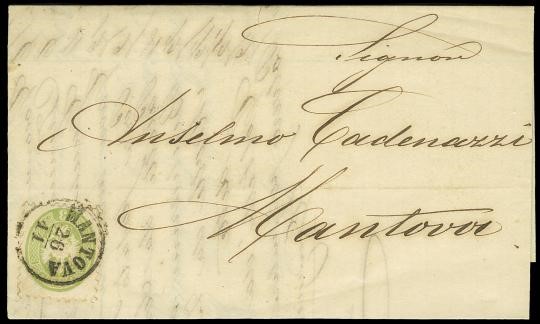 Signor
Anselmo Cadenazzi
Mantova
MANTOVA
26
11